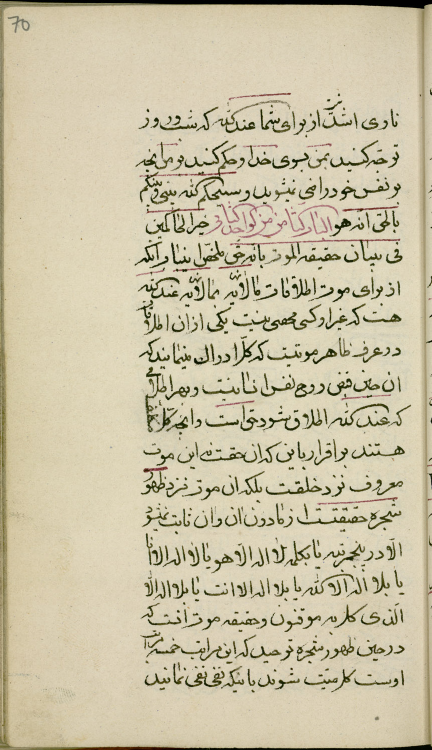 70
ناری اشدّتر از برای شما عند الله که شب و روز
توجّه کنید بمن بسوی خدا و حکم کنید بر من آنچه
بر نفس خود راضی نمیشوید و سیحکم الله بینی و بینکم
بالحقّ انه هو خیر الحاکمین
فی بیان حقیقه الموت بانه حق ملخّص این باب آنکه
از برای موت اطلاقات مالانهایه بمالانهایه عند الله
هست که غیر او کسی محصی نیست یکی از آن اطلاقات
در عرف ظاهر موتیست که کلّ ادراک مینمایند که
آن حین قبض روح نفس انسانیست و بهر اطلاقی
که عند الله اطلاق شود حق است و آنچه کلّ
هستند بر اقرار باین که ان حقست نه این موت
معروف نزد خلقست بلکه ان موت نزد ظهور
شجره حقیقتست از مادون آن و آن ثابت نمیشود
الّا در پنج مرتبه یا بکلمه لا اله الّا هو یا لا اله الّا انا
یا بلا اله الّا الله یا بلا اله الّا انت یا بلا اله الّا
الّذی کلّ به موقنون و حقیقه موت آنست که
در حین ظهور شجره توحید که این مراتب خمسه مرایای
اوست کلّ میّت شوند باینکه نفی نفی نمایند